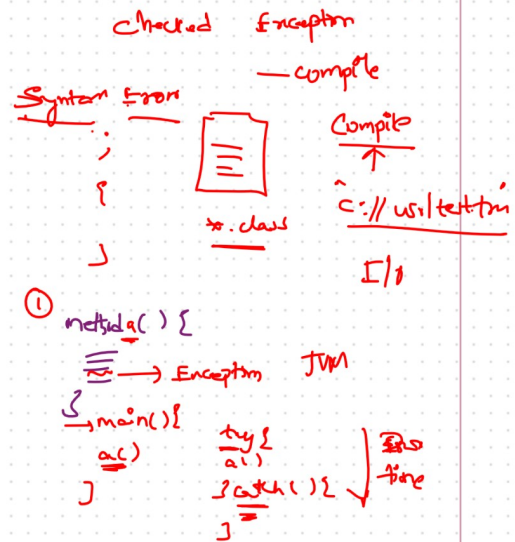 Checked Exception
— compile
Syntax Error
;
{
}
*.class
Compile
↑
c:// usr/test.txt
I/O
①
method a( ) {
→ Exception JVM
}
→ main(){
a()
}
try {
a()
} catch ( ) {
}
time